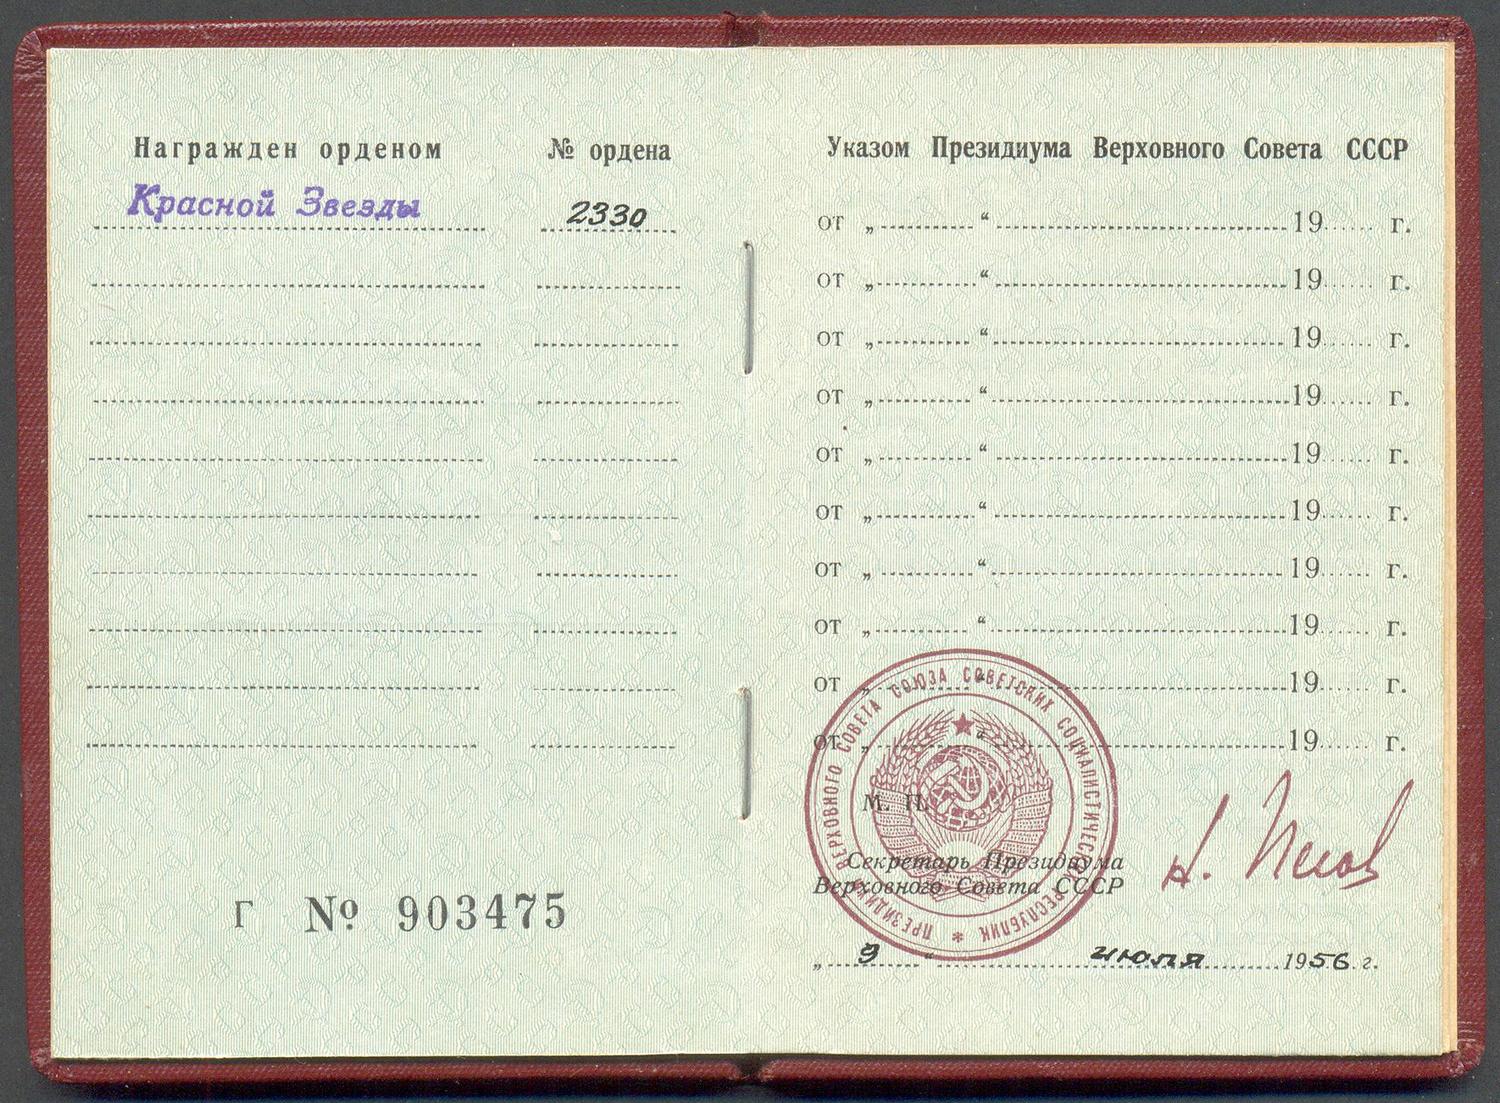 Награжден орденом
№ ордена
Красной Звезды
2330
Г № 903475
Указом Президиума Верховного Совета СССР
от „ “ 19 г.
от „ “ 19 г.
от „ “ 19 г.
от „ “ 19 г.
от „ “ 19 г.
от „ “ 19 г.
от „ “ 19 г.
от „ “ 19 г.
от „ “ 19 г.
от „ “ 19 г.
М. П.
ПРЕЗИДИУМ ВЕРХОВНОГО СОВЕТА СОЮЗА СОВЕТСКИХ СОЦИАЛИСТИЧЕСКИХ РЕСПУБЛИК *
Секретарь Президиума
Верховного Совета СССР
Н. Пегов
„ 9 “ июля 1956 г.